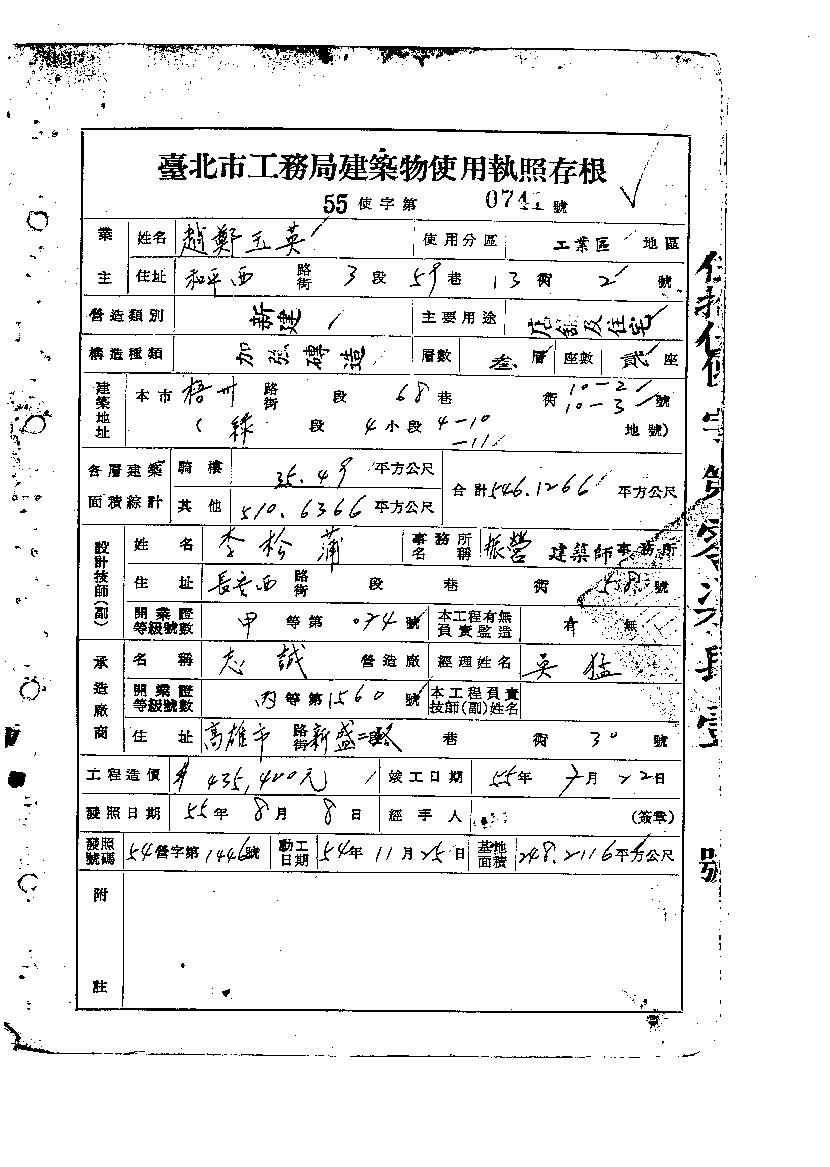 臺北市工務局建築物使用執照存根
55 使字第 074 號
業主 姓名 趙鄭玉英 使用分區 工業區 地區
住址 和平西 路街 3 段 59 巷 13 衖 2 號
營造類別 新建 主要用途 店舖及住宅
構造種類 加强磚造 層數 叁 層 座數 貳 座
建築地址 本市 梧州 路街 段 68 巷 衖 10-2 10-3 號
( 綠 段 4 小段 4-10 -11 地號)
各層建築面積綜計 騎樓 35.49 平方公尺 合計 546.1266 平方公尺
其他 510.6366 平方公尺
設計技師(副) 姓名 李松蒲 事務所名稱 振營 建築師事務所
住址 長安西 路街 段 巷 衖 58 號
開業證等級號數 甲 等第 024 號 本工程有無負責監造 有 無
承造廠商 名稱 志誠 營造廠 經理姓名 吳猛
開業證等級號數 丙 等第 1560 號 本工程負責技師(副)姓名
住址 高雄市 路街 新盛二路 巷 衖 30 號
工程造價 $ 435,400元 竣工日期 55 年 7 月 22 日
發照日期 55 年 8 月 8 日 經手人 (簽章)
發照號碼 54 營字第 1446 號 動工日期 54 年 11 月 25 日 基地面積 248.2116 平方公尺
附註
號